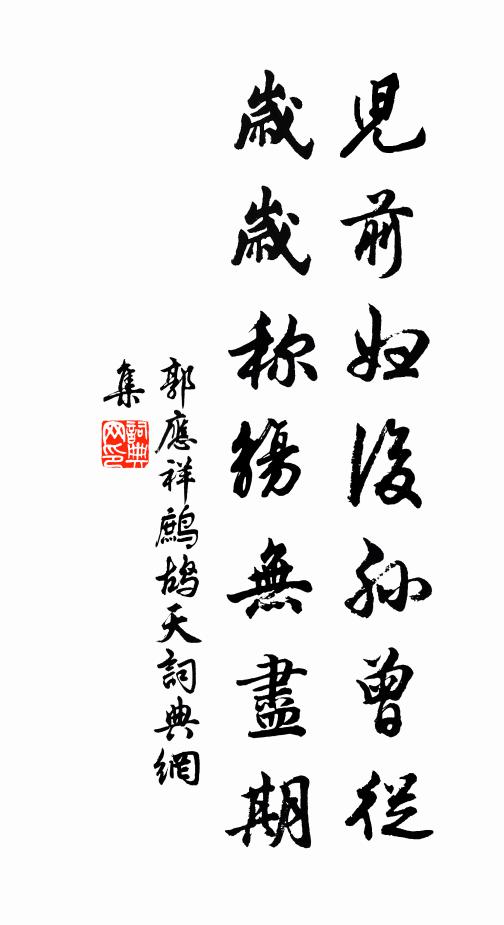 兒前妇後孙曾從
歲歲称觴無盡期
郭應祥鷓鴣天詞典網
集
詞典
网印